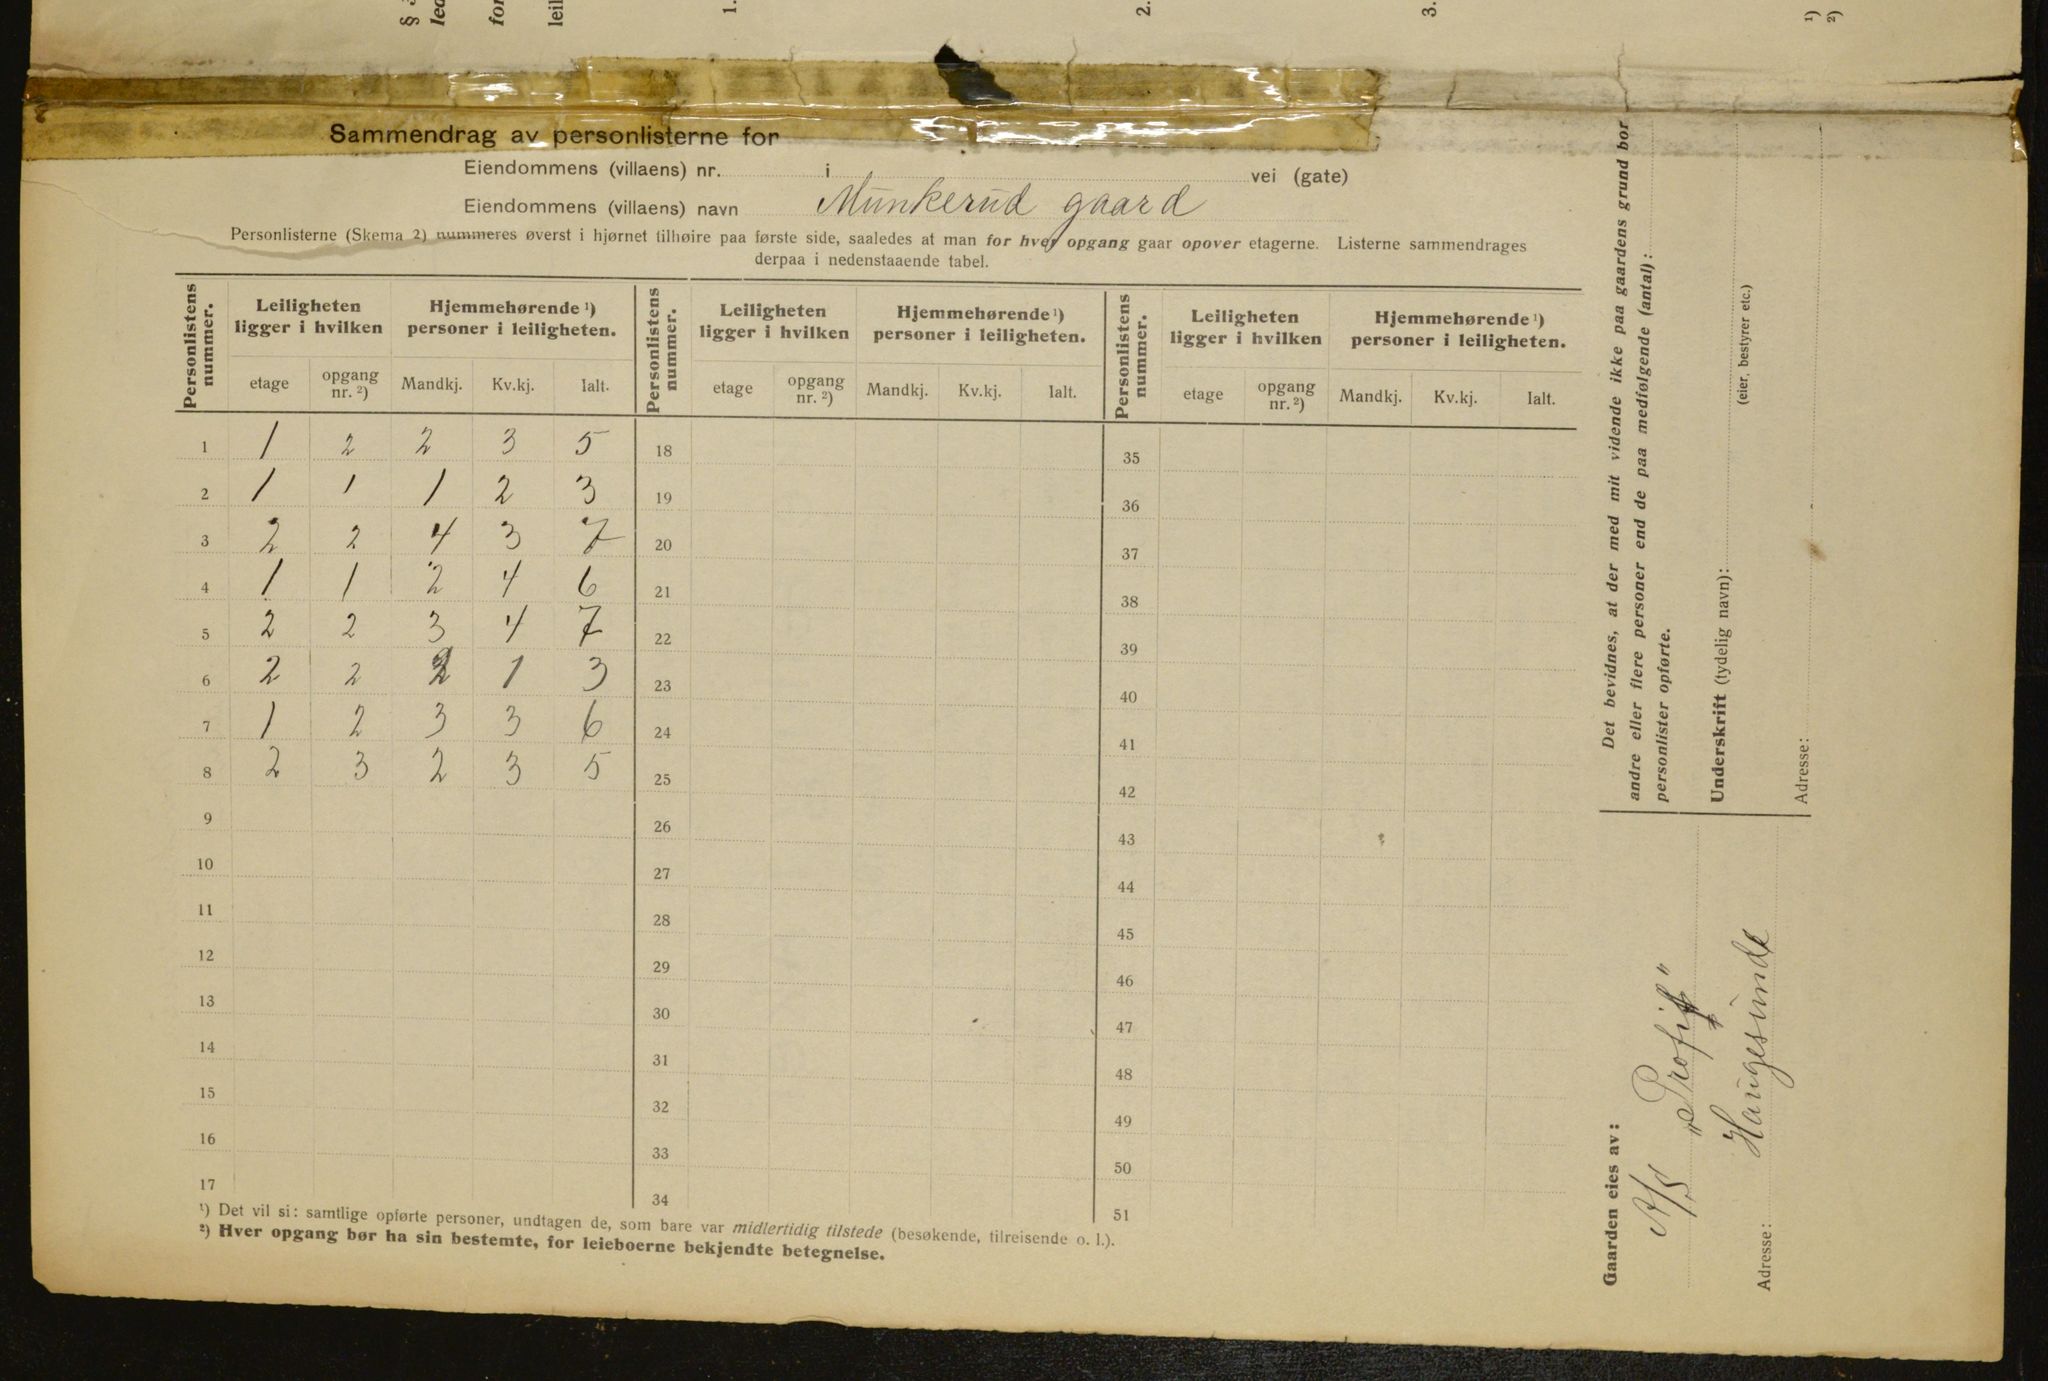 §
1.
2.
3.
1)
2)
Sammendrag av personlisterne for
Eiendommens (villaens) nr. i vei (gate)
Eiendommens (villaens) navn Munkerud gaard
Personlisterne (Skema 2) nummeres øverst i hjørnet tilhøire paa første side, saaledes at man for hver opgang gaar opover etagerne. Listerne sammendrages
derpaa i nedenstaaende tabel.
Personlistens nummer. Leiligheten ligger i hvilken Hjemmehørende ¹) personer i leiligheten. Personlistens nummer. Leiligheten ligger i hvilken Hjemmehørende ¹) personer i leiligheten. Personlistens nummer. Leiligheten ligger i hvilken Hjemmehørende ¹) personer i leiligheten.
etage opgang nr. ²) Mandkj. Kv.kj. Ialt. etage opgang nr. ²) Mandkj. Kv.kj. Ialt. etage opgang nr. ²) Mandkj. Kv.kj. Ialt.
1 1 2 2 3 5 18 35
2 1 1 1 2 3 19 36
3 2 2 4 3 7 20 37
4 1 1 2 4 6 21 38
5 2 2 3 4 7 22 39
6 2 2 2 1 3 23 40
7 1 2 3 3 6 24 41
8 2 3 2 3 5 25 42
9 26 43
10 27 44
11 28 45
12 29 46
13 30 47
14 31 48
15 32 49
16 33 50
17 34 51
¹) Det vil si: samtlige opførte personer, undtagen de, som bare var midlertidig tilstede (besøkende, tilreisende o. l.).
²) Hver opgang bør ha sin bestemte, for leieboerne bekjendte betegnelse.
Det bevidnes, at der med mit vidende ikke paa gaardens grund bor
andre eller flere personer end de paa medfølgende (antal):
personlister opførte.
Underskrift (tydelig navn):
(eier, bestyrer etc.)
Adresse:
Gaarden eies av:
A/S „Profit"
Adresse: Haugesund